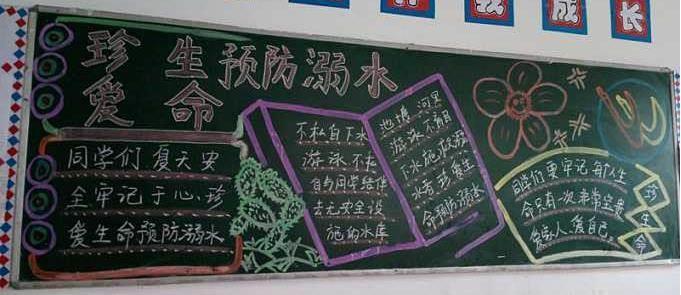 我成长
珍 生 预防溺水
爱 命
同学们夏天安
全牢记于心,珍
爱生命预防溺水
不私自下水
游泳不起
自与同学结伴
去无安全设
施的水库
池塘、河里
游泳不盲目
下水施救溺
水者珍爱生
命预防溺水
同学们要牢记每个人生
命只有一次非常宝贵
爱家人、爱自己。
珍
生
命